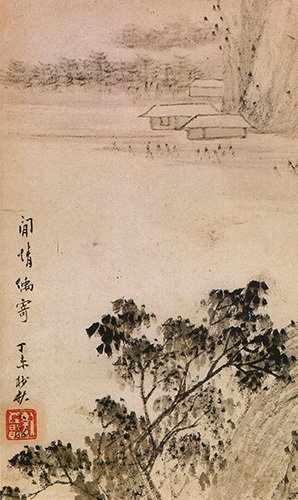 閒情偶寄 丁未杪秋